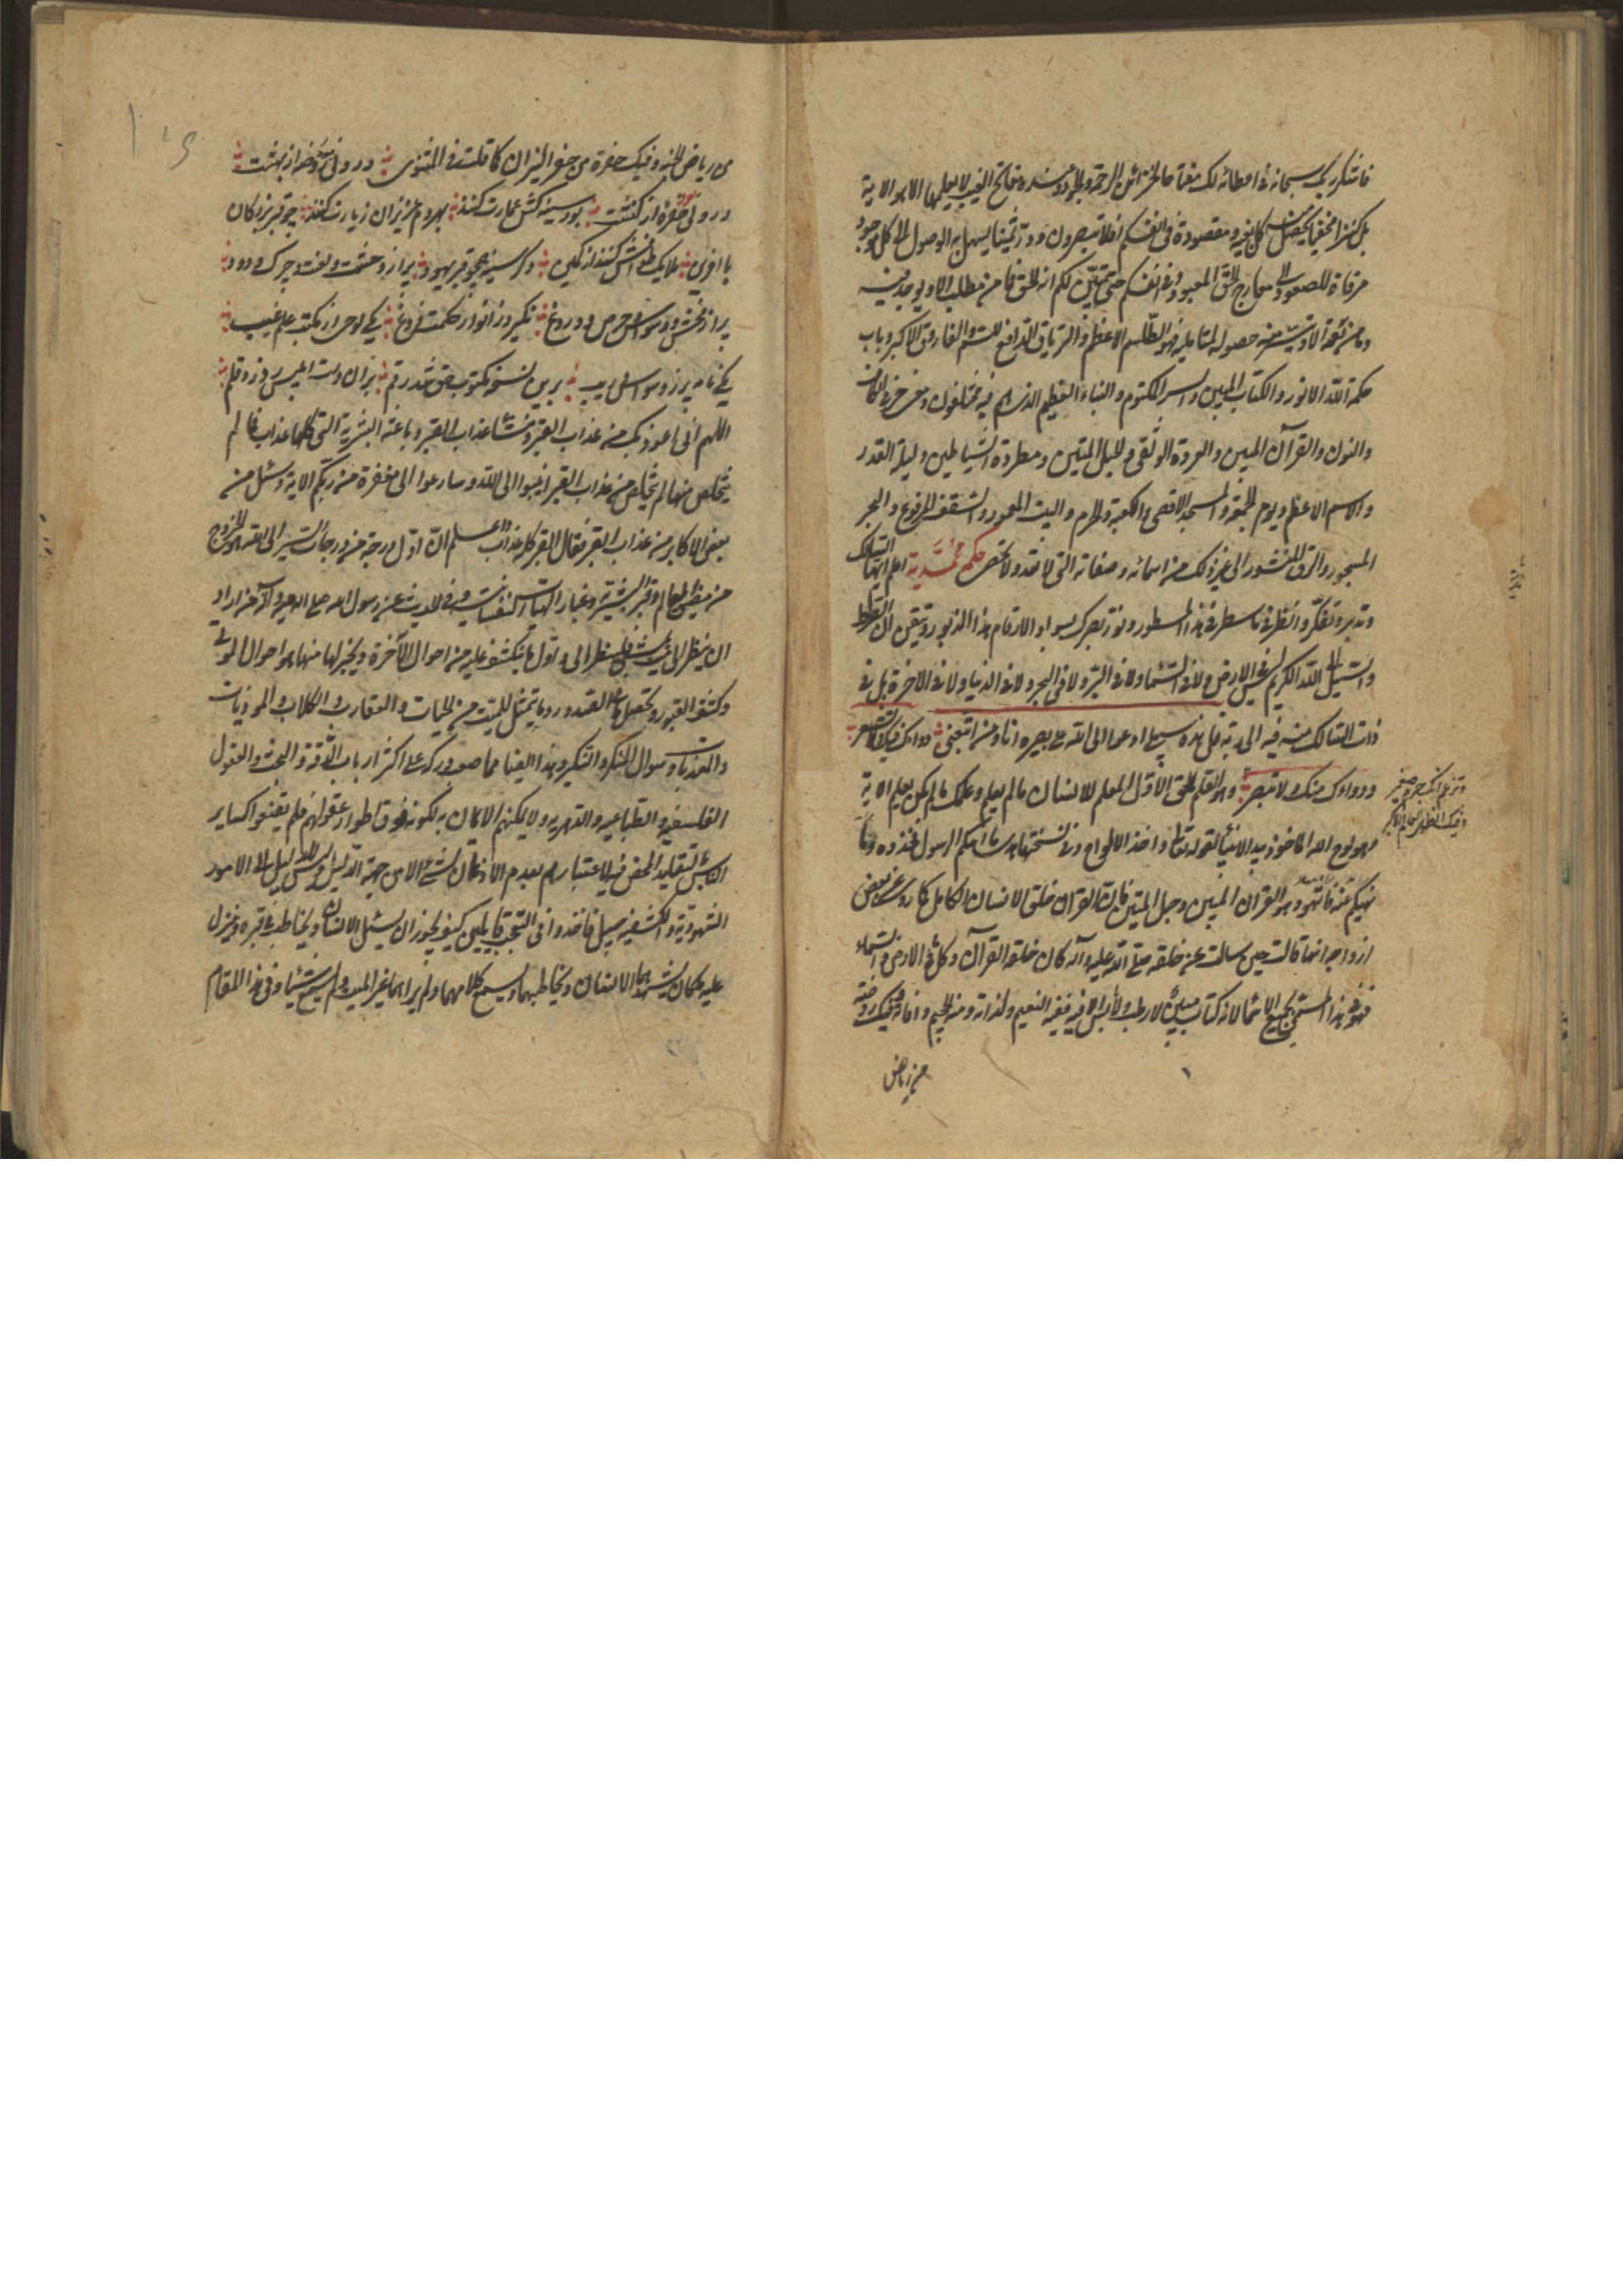 فاشكر ربك سبحانه فى اعطائه لك مفتاحا لخزائن الرحمة والجود وعنده مفاتح الغيب لا يعلمها الا هو الاية
بل كنزا مخفيا يحصل منه كل بغية ومقصود وفى انفسكم افلا تبصرون ودرة ثمينا يسهل به الوصول الى كل موجود
مرقاة للصعود الى معارج الحق المعبود وفى انفسكم حتى يتبين لكم انه الحق فما من مطلب الا ويوجد فيه
وما من نقمة الا وتيسر منه حصوله لمقابليه فهو الطلسم الاعظم والترياق الدافع للسم والفاروق الاكبر وباب
حكمة الله الانور والكتاب المبين والسر المكتوم والنباء العظيم الذى هم فيه مختلفون ومخزن الكاف
والنون والقرآن المبين والعروة الوثقى والحبل المتين ومطردة الشياطين وليلة القدر
والاسم الاعظم ويوم الجمعة والمسجد الاقصى والكعبة والحرم والبيت المعمور والسقف المرفوع والبحر
المسجور والرق المنشور الى غير ذلك من اسمائه وصفاته التى لا تعد ولا تحصى حكم محمدية اعلم ايها السالك
وتدبر وتفكر وانظر فى ما سطر فى هذا المسطور ونور بصرك بسواد الارقام هذا المزبور وتيقن ان الصراط
والسبيل الى الله الكريم ليس فى الارض ولا فى السماء ولا فى البر ولا فى البحر ولا فى الدنيا ولا فى الاخرة بل فى
ذات السالك منه فيه الى ربه قل هذه سبيلى ادعوا الى الله على بصيره انا ومن اتبعنى دواؤك فيك وما تشعر
وداؤك منك ولا تبصر وهو القلم الحق الاول المعلم للانسان ما لم يعلم وعلمك ما لم تكن تعلم الاية
وتزعم انك جرم صغير
وفيك انطوى العالم الاكبر
وهو لوح الله الماخوذ بيد الانبياء لقوله تعالى واخذ الالواح وفى نسختها هدى ما آتيكم الرسول فخذوه وما
نهيكم عنه فانتهوا وهو القران المبين وحبل المتين فان القران خلق الانسان الكامل كما روى عن بعض
ازواجه انها قالت حين سالت عن خلقه صلى الله عليه وآله كان خلقه القرآن وكل فى الارض والسماء
فهو فى هذا المسمى بجميع الاسماء لانه كتاب مبين لا رطب ولا يابس الا فيه ففيه النعيم ولذاته ومنه الجحيم وافاته وفيك روضة
من رياض
من رياض الجنه وفيك حفرة من حفر النيران كما قلت فى المثنوى درون روضه از بهشت
درون حفره از كنشت بود سينه كش عمارت كنند بهر دم عزيزان زيارت كنند چو قبر بزركان
با افرين ملايك طوافش كنند از كمين دكر سينه همچو قبر يهود پر از خشم و لعنت و چرك و دود
پر از فحش و وسواس و حرص و دروغ نكيرد ز انوار حكمت فروغ يكى لوحى از مكتب علم غيب
يكى نامه پر ز وسواس ريب برين نسخه مكتوب حق شد رقم بران دست ابليس زد قلم
اللهم انى اعوذ بك من عذاب القبر ومنشأ عذاب القبر وباعثه البشرية التى كلها عذاب فما لم
يتخلص منها لم يتخلص من عذاب القبر انيبوا الى الله وسارعوا الى مغفرة من ربكم الاية وسئل من
بعض الاكابر من عذاب القبر فقال القبر كله عذاب واعلم ان اول درجة من درجات السير الى الله الخروج
من مضيق عالم وقبر البشرية وغبار الهيات النفسانية وفى الحديث عن رسول الله صلى الله عليه وآله من اراد
ان ينظر الى ميت فلينظر الى واول ما ينكشف عليه من احوال الآخرة ويخبر لها منها هو احوال الموتى
وكشف القبور وتحصيل ما فى الصدور وما يتمثل للميت من الحيات والعقارب والكلاب والموذيات
والمعذبات وسوال المنكر والنكير وهذا ايضا مما صعب دركه على اكثر ارباب الدقة والبحث والعقول
الفلسفيه والطباعيه والدهريه ولا يمكنهم الايمان به لكونه فوق اطوار عقولهم فلم يقنعوا كساير
الناس بتقليد المحض فيه لاعتبارهم بعدم الاذعان لشئ الا من جهة الدليل وليس للدليل الى الامور
الشهودية والكشفيه سبيل فاخذوا فى التعجب قايلين كيف يجوز ان يسئل الانسان ويخاطب فى قبره وينزل
عليه ملكان يشهدهما الانسان ويخاطبهما ويسمع كلامهما ولم يراهما غير الميت ولم يسمع شيئا وفى هذا المقام